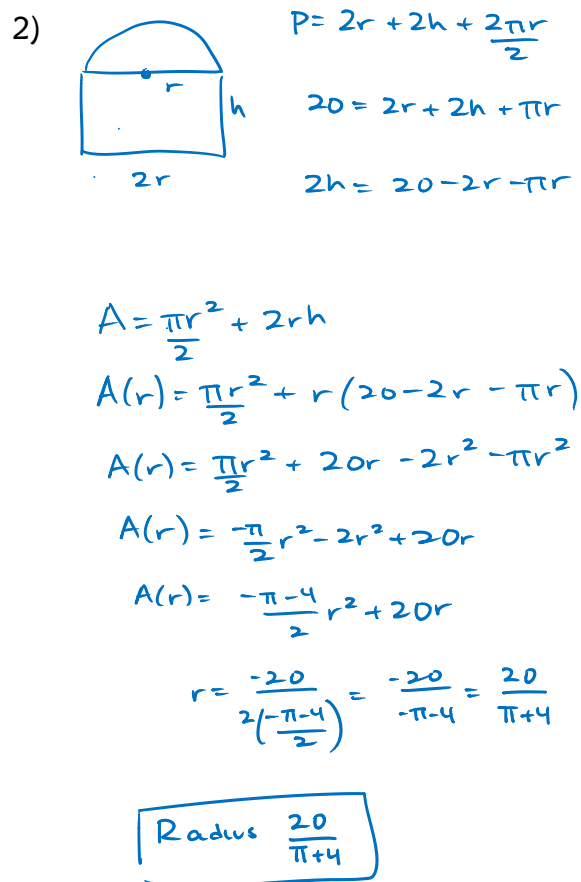 2)
P= 2r + 2h + 2πr/2
r
h
20 = 2r + 2h + πr
2r
2h = 20-2r-πr
A = πr²/2 + 2rh
A(r) = πr²/2 + r(20-2r - πr)
A(r) = πr²/2 + 20r - 2r² - πr²
A(r) = -π/2 r² - 2r² + 20r
A(r) = -π-4/2 r² + 20r
r = -20/2(-π-4/2) = -20/-π-4 = 20/π+4
Radius 20/π+4